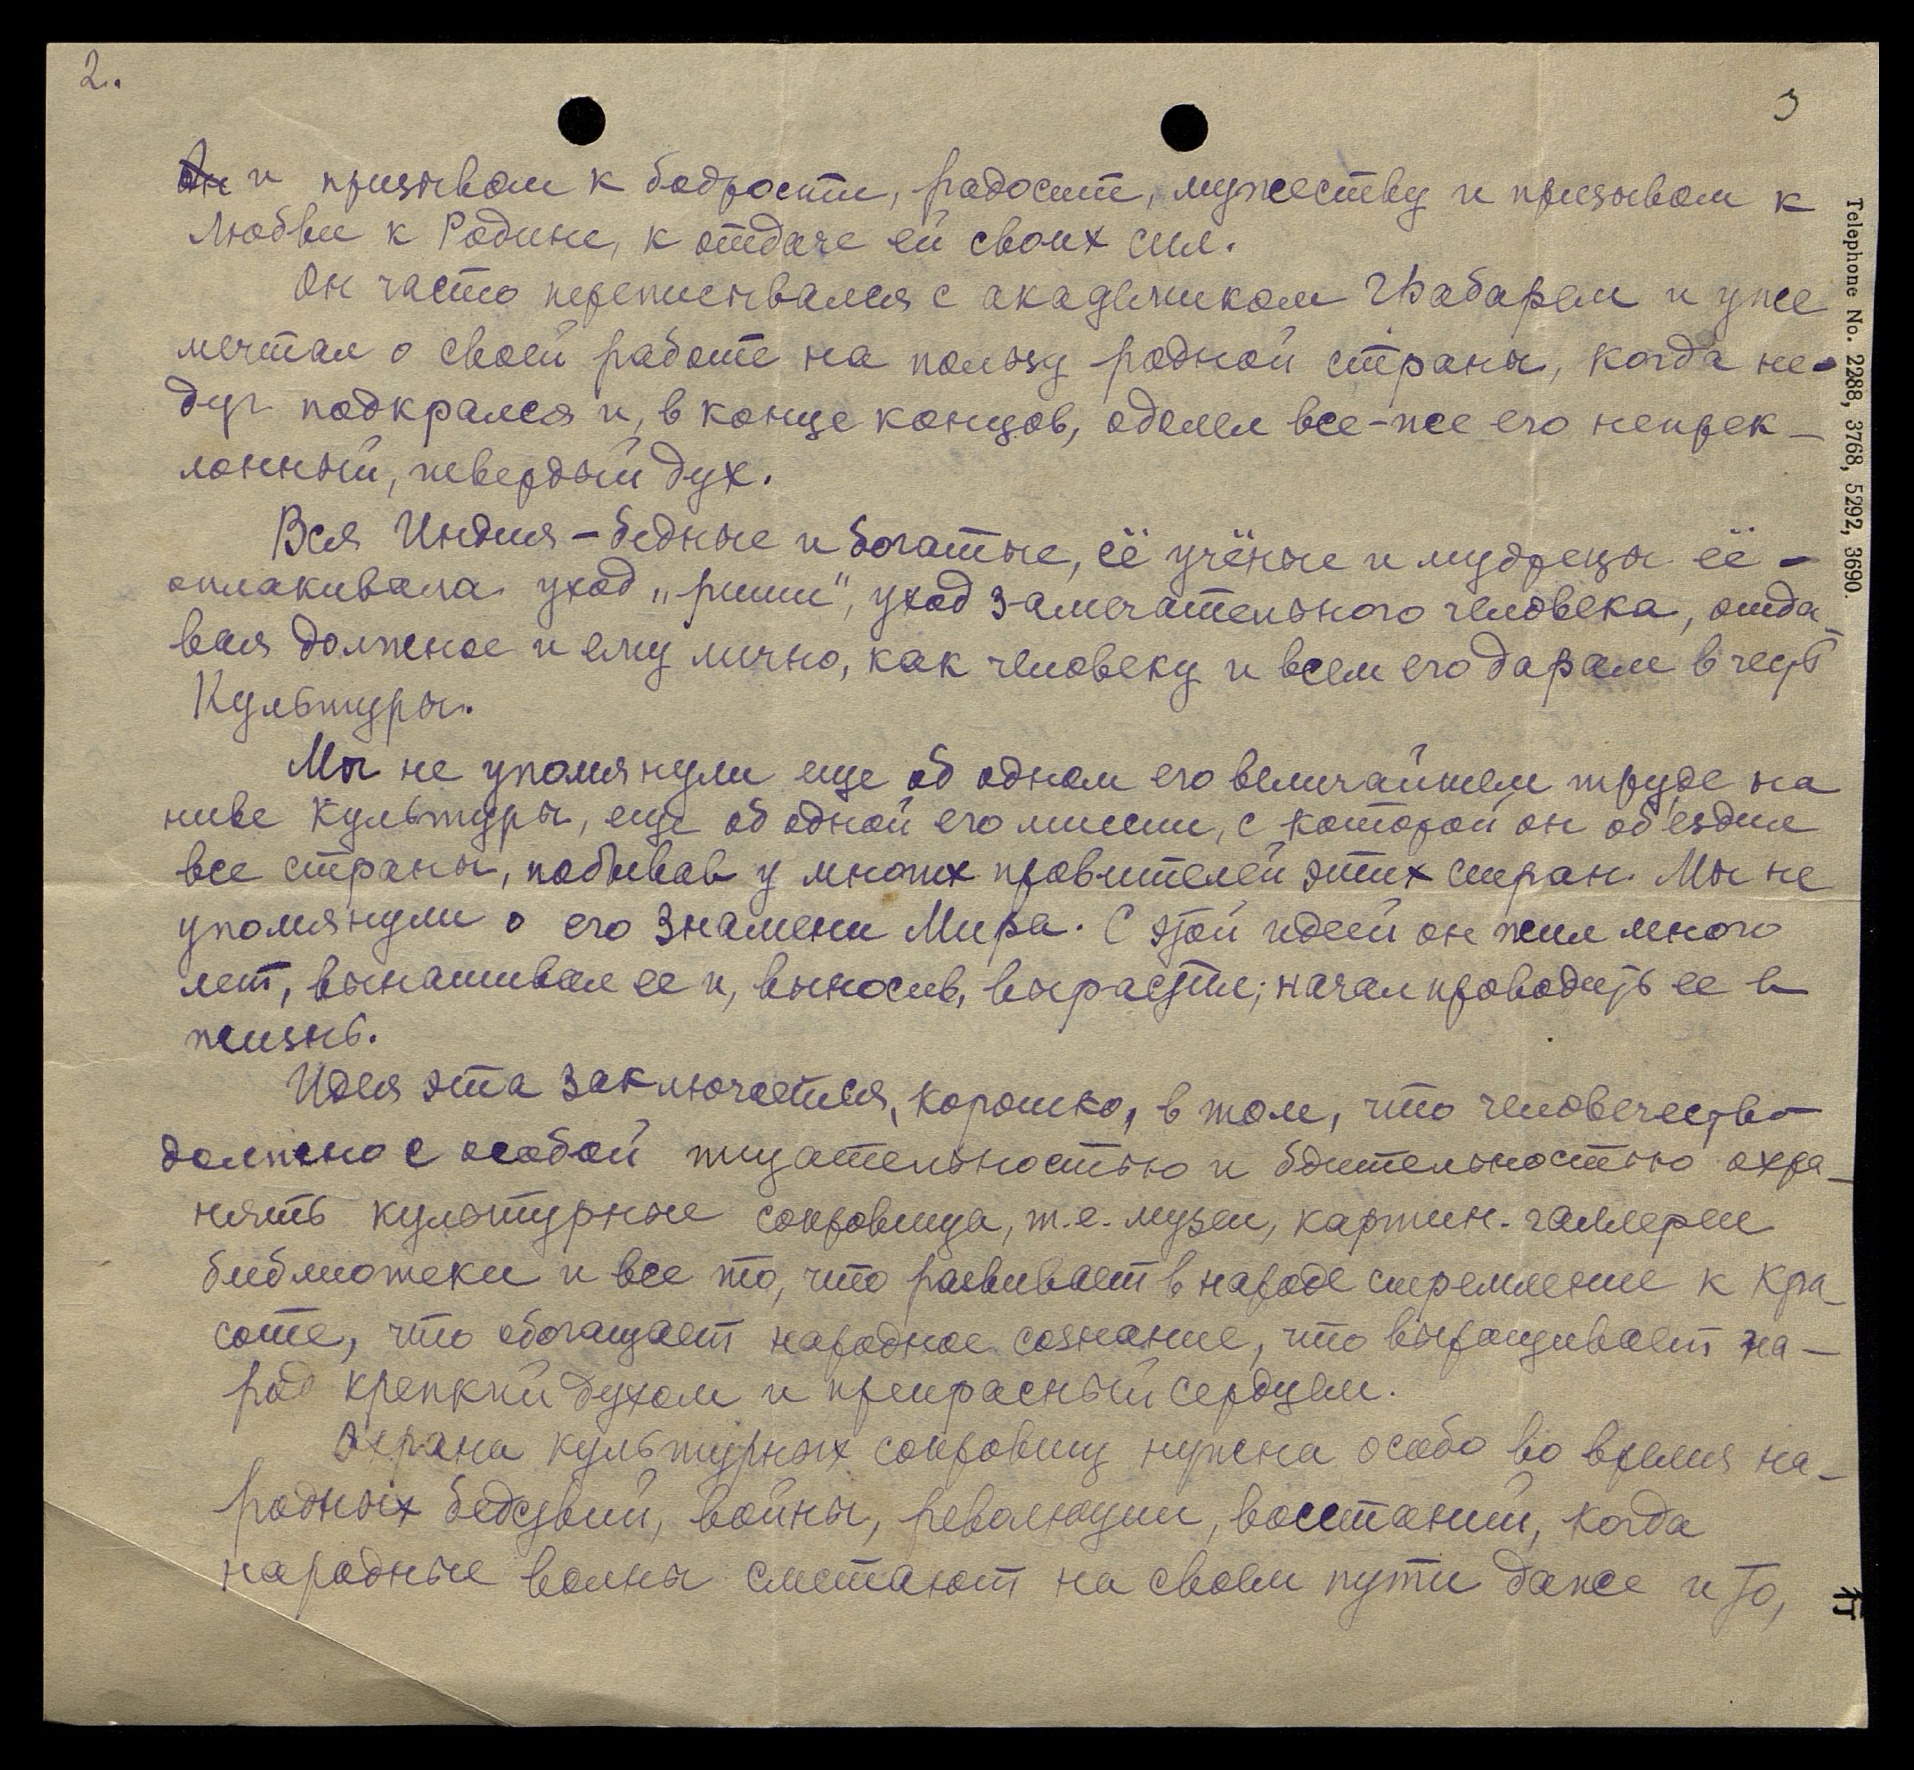 2.
3
и призывом к бодрости, радости, мужеству и призывом к
любви к Родине, к отдаче ей своих сил.
Он часто переписывался с академиком Грабарем и уже
мечтал о своей работе на пользу родной страны, когда не-
дуг подкрался и, в конце концов, одолел все-же его непрек-
лонный, твердый дух.
Вся Индия – бедные и богатые, её учёные и мудрецы её –
оплакивала уход „риши", уход замечательного человека, отда-
вая должное и ему лично, как человеку и всем его дарам в
Культуры.
Мы не упомянули еще об одном его величайшем труде на
ниве Культуры, еще об одной его миссии, с которой он объездил
все страны, побывав у многих правителей этих стран. Мы не
упомянули о его Знамени Мира. С этой идеей он жил много
лет, вынашивал ее и, выносив, вырастил; начал проводить ее в
жизнь.
Идея эта заключается, коротко, в том, что человечество
должно с особой тщательностью и бдительностью охра-
нять культурные сокровища, т.е. музеи, картин. галлереи
библиотеки и все то, что развивает в народе стремление к Кра-
соте, что обогащает народное сознание, что выращивает на-
род крепкий духом и прекрасный сердцем.
Охрана культурных сокровищ нужна особо во время на-
родных бедствий, войны, революции, восстаний, когда
народные волны сметают на своем пути даже и то,
Telephone No. 2288, 3768, 5292, 3690.
行